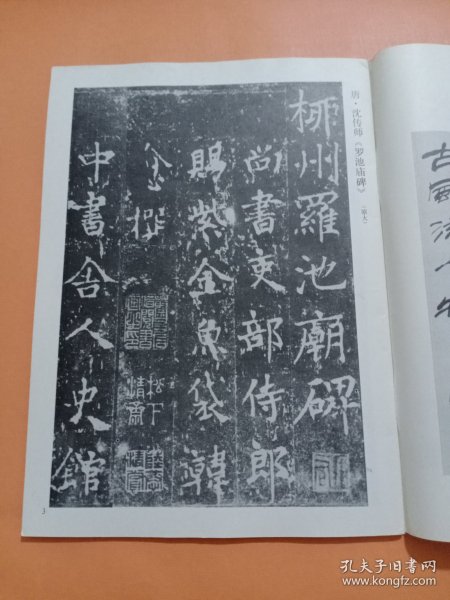 唐·沈传师《罗池庙碑》(原大)
柳州羅池廟碑
尚書吏部侍郎
賜紫金魚袋韓
愈撰
松下
清齋
中書舍人史館
3
古
孔夫子旧书网
www.kongfz.com